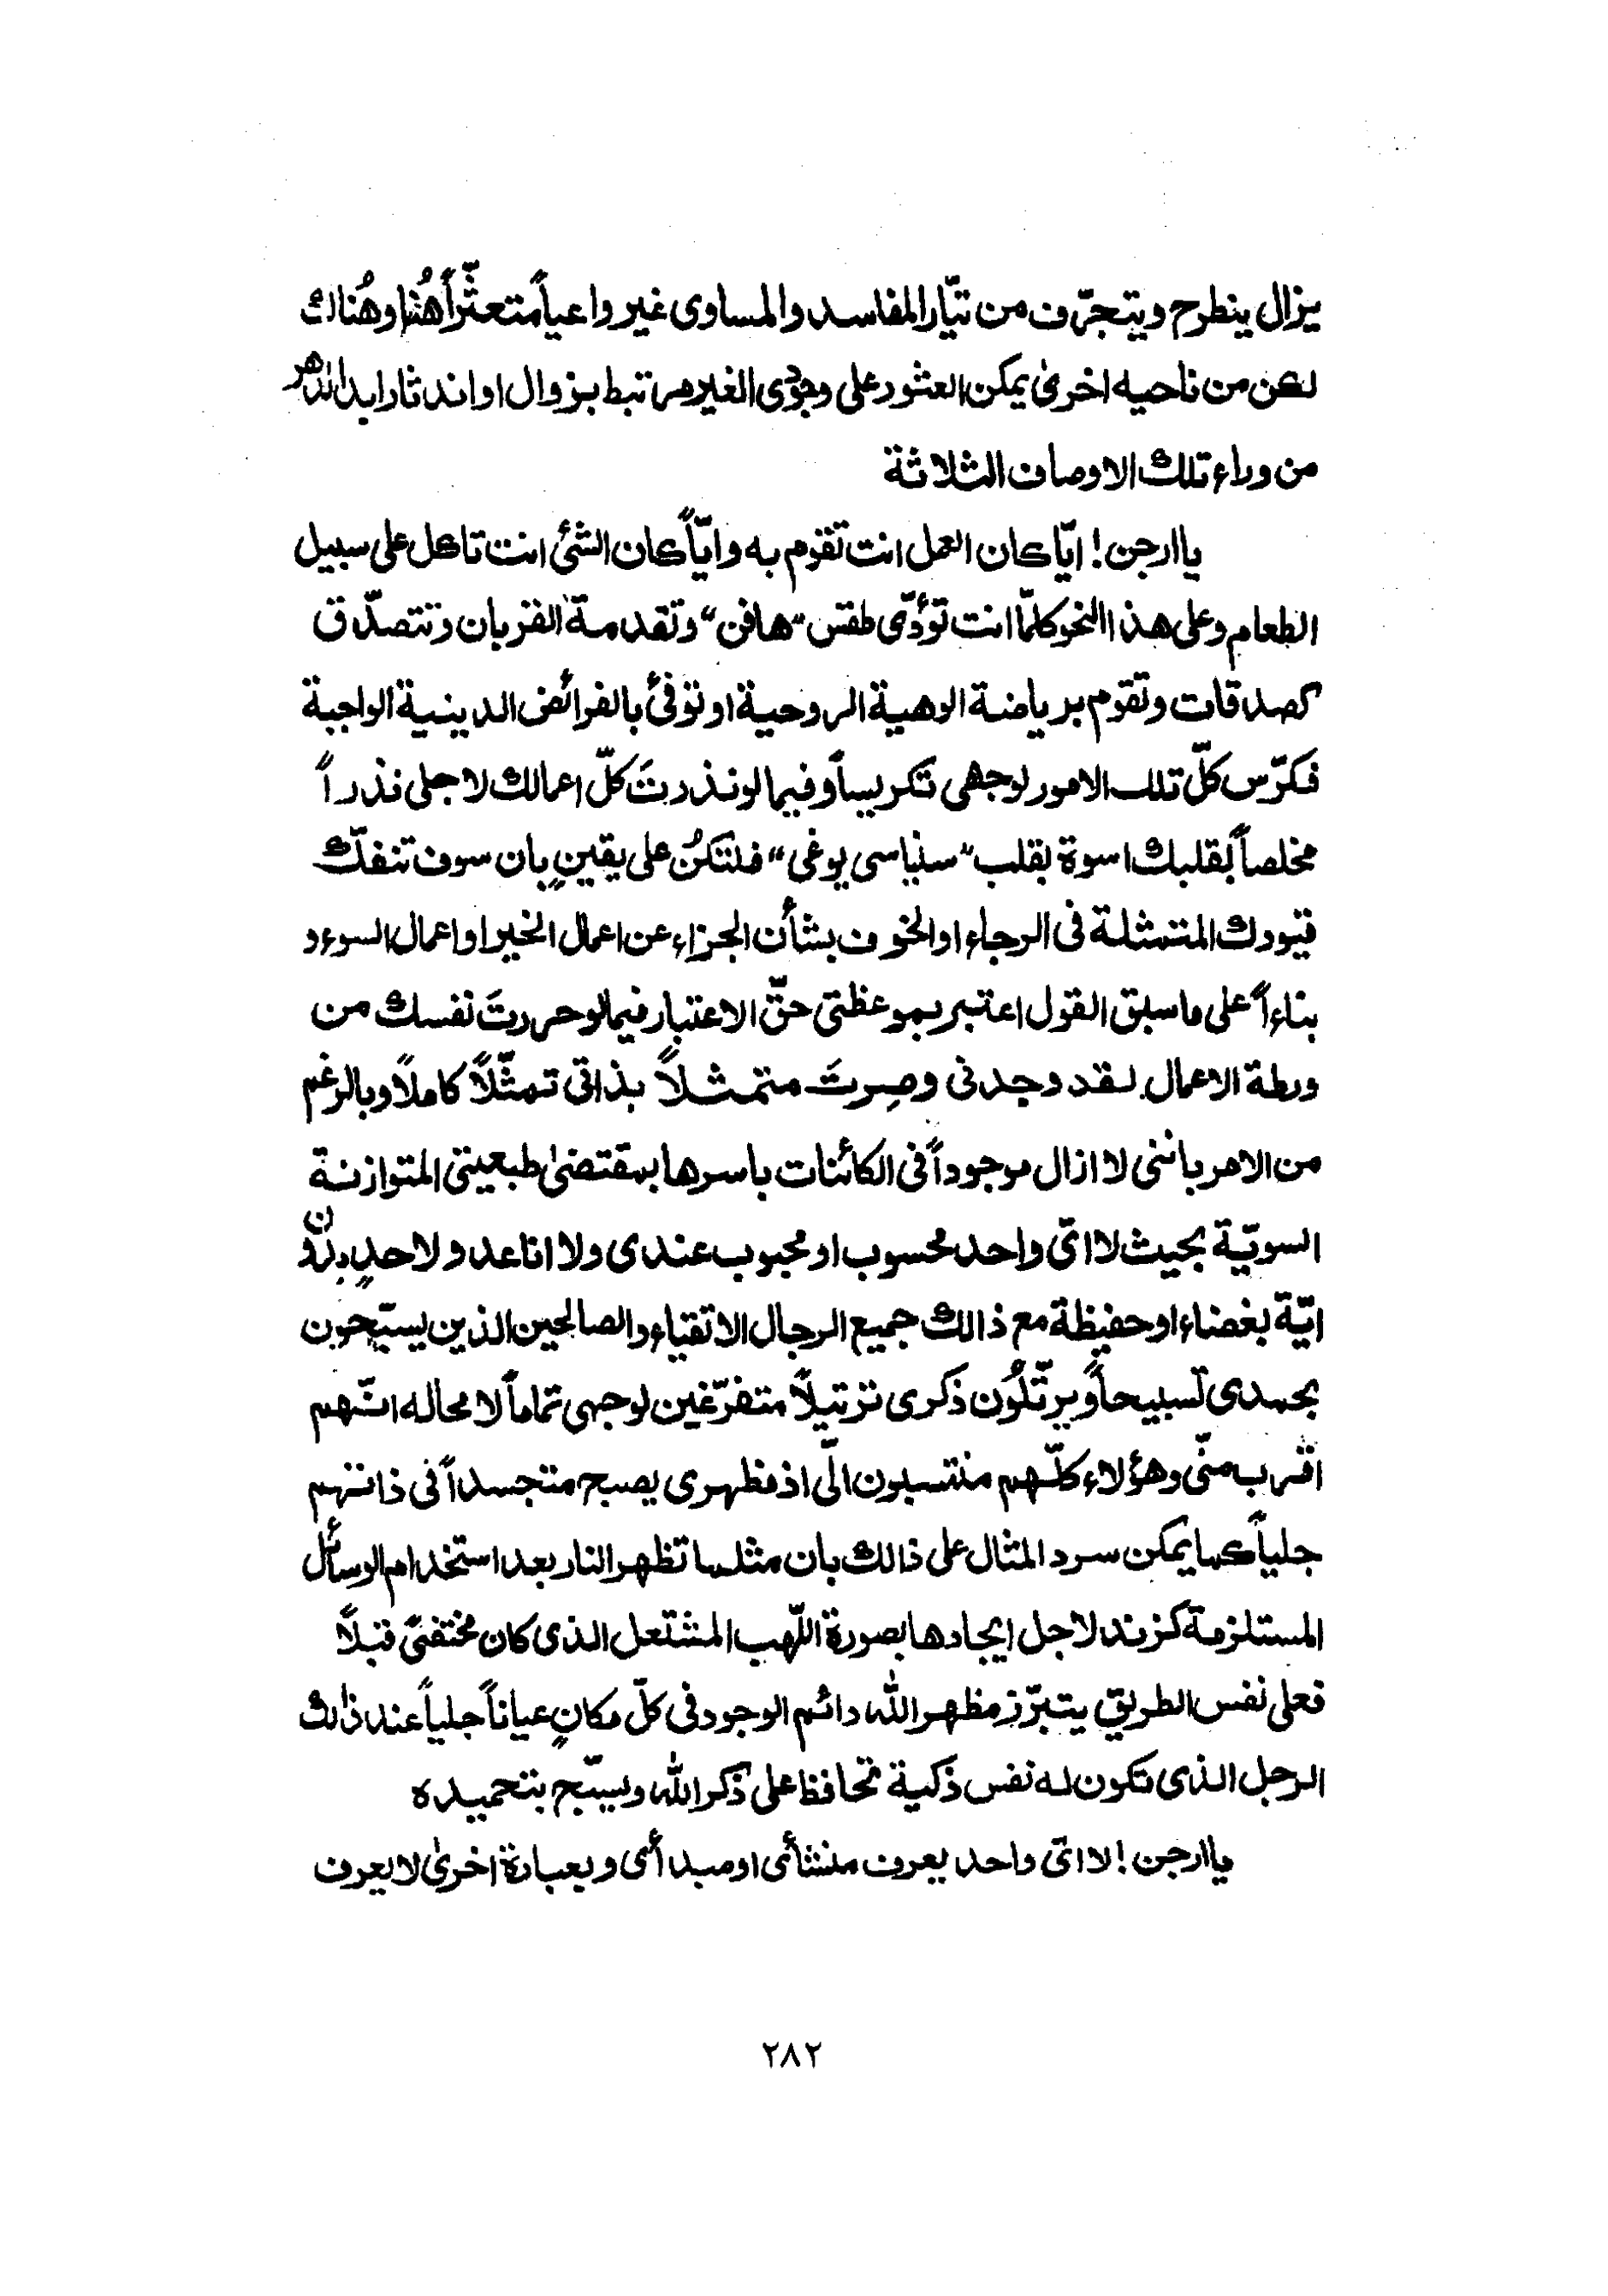 يزال ينطرح ويتجرّف من تيّار المفاسد والمساوى غير واعياً متعثّراً هُنا وهُناك
لكن من ناحيه اخرىٰ يمكن العثور على وجودى الغير مرتبط بزوال او اندثار ابد الدهر
من وراء تلك الاوصاف الثلاثة
يا ارجن! ايّا كان العمل انت تقوم به وايّاً كان الشئ انت تاكل على سبيل
الطعام وعلى هذا النحو كلمّا انت تؤدّى طقس "هافن" وتقدمة القربان وتتصدّق
كصدقات وتقوم برياضة الوهية الروحية او توفئ بالفرائض الدينية الواجبة
فكرّس كلّ تلك الامور لوجهى تكريساً وفيما لو نذرتَ كلّ اعمالك لاجلى نذراً
مخلصاً بقلبك اسوة بقلب "سنياسى يوغى" فلتكنُ على يقينٍ بان سوف تنفكّ
قيودك المتمثلة فى الرجاء او الخوف بشأن الجزاء عن اعمال الخير او اعمال السوء و
بناءاً على ما سبق القول اعتبر بموعظتى حقّ الاعتبار فيما لو حررتَ نفسك من
ورطة الاعمال لقد وجدنى وصِرتَ متمثلاً بذاتى تمثّلاً كاملاً وبالرغم
من الامر باننى لا ازال موجوداً فى الكائنات باسرها بمقتضىٰ طبعيتى المتوازنة
السويّة بحيث لا اىّ واحد محسوب او محبوب عندى ولا انا عدو لاحدٍ بدون
ايّة بغضاء او حفيظة مع ذالك جميع الرجال الاتقياء والصالحين الذين يسبّحون
بحمدى تسبيحاً ويرتّلُون ذكرى ترتيلاً متفرّغين لوجهى تماماً لا محاله انّهم
اقرب منّى وهؤلاء كلّهم منتسبون الىّ اذ مظهرى يصبح متجسداً فى ذاتهم
جلياً كما يمكن سرد المثال على ذالك بان مثلما تظهر النار بعد استخدام الوسائل
المستلزمة كزند لاجل ايجادها بصورة اللّهب المشتعل الذى كان مختفىً قبلاً
فعلى نفس الطريق يتبرّز مظهر الله دائم الوجود فى كلّ مكانٍ عياناً جلياً عند ذالك
الرجل الذى تكون له نفس ذكية تحافظ على ذكر الله ويسبّح بتحميده
يا ارجن! لا اىّ واحد يعرف منشأى او مبدأى وبعبارة اخرىٰ لا يعرف
٢٨٢